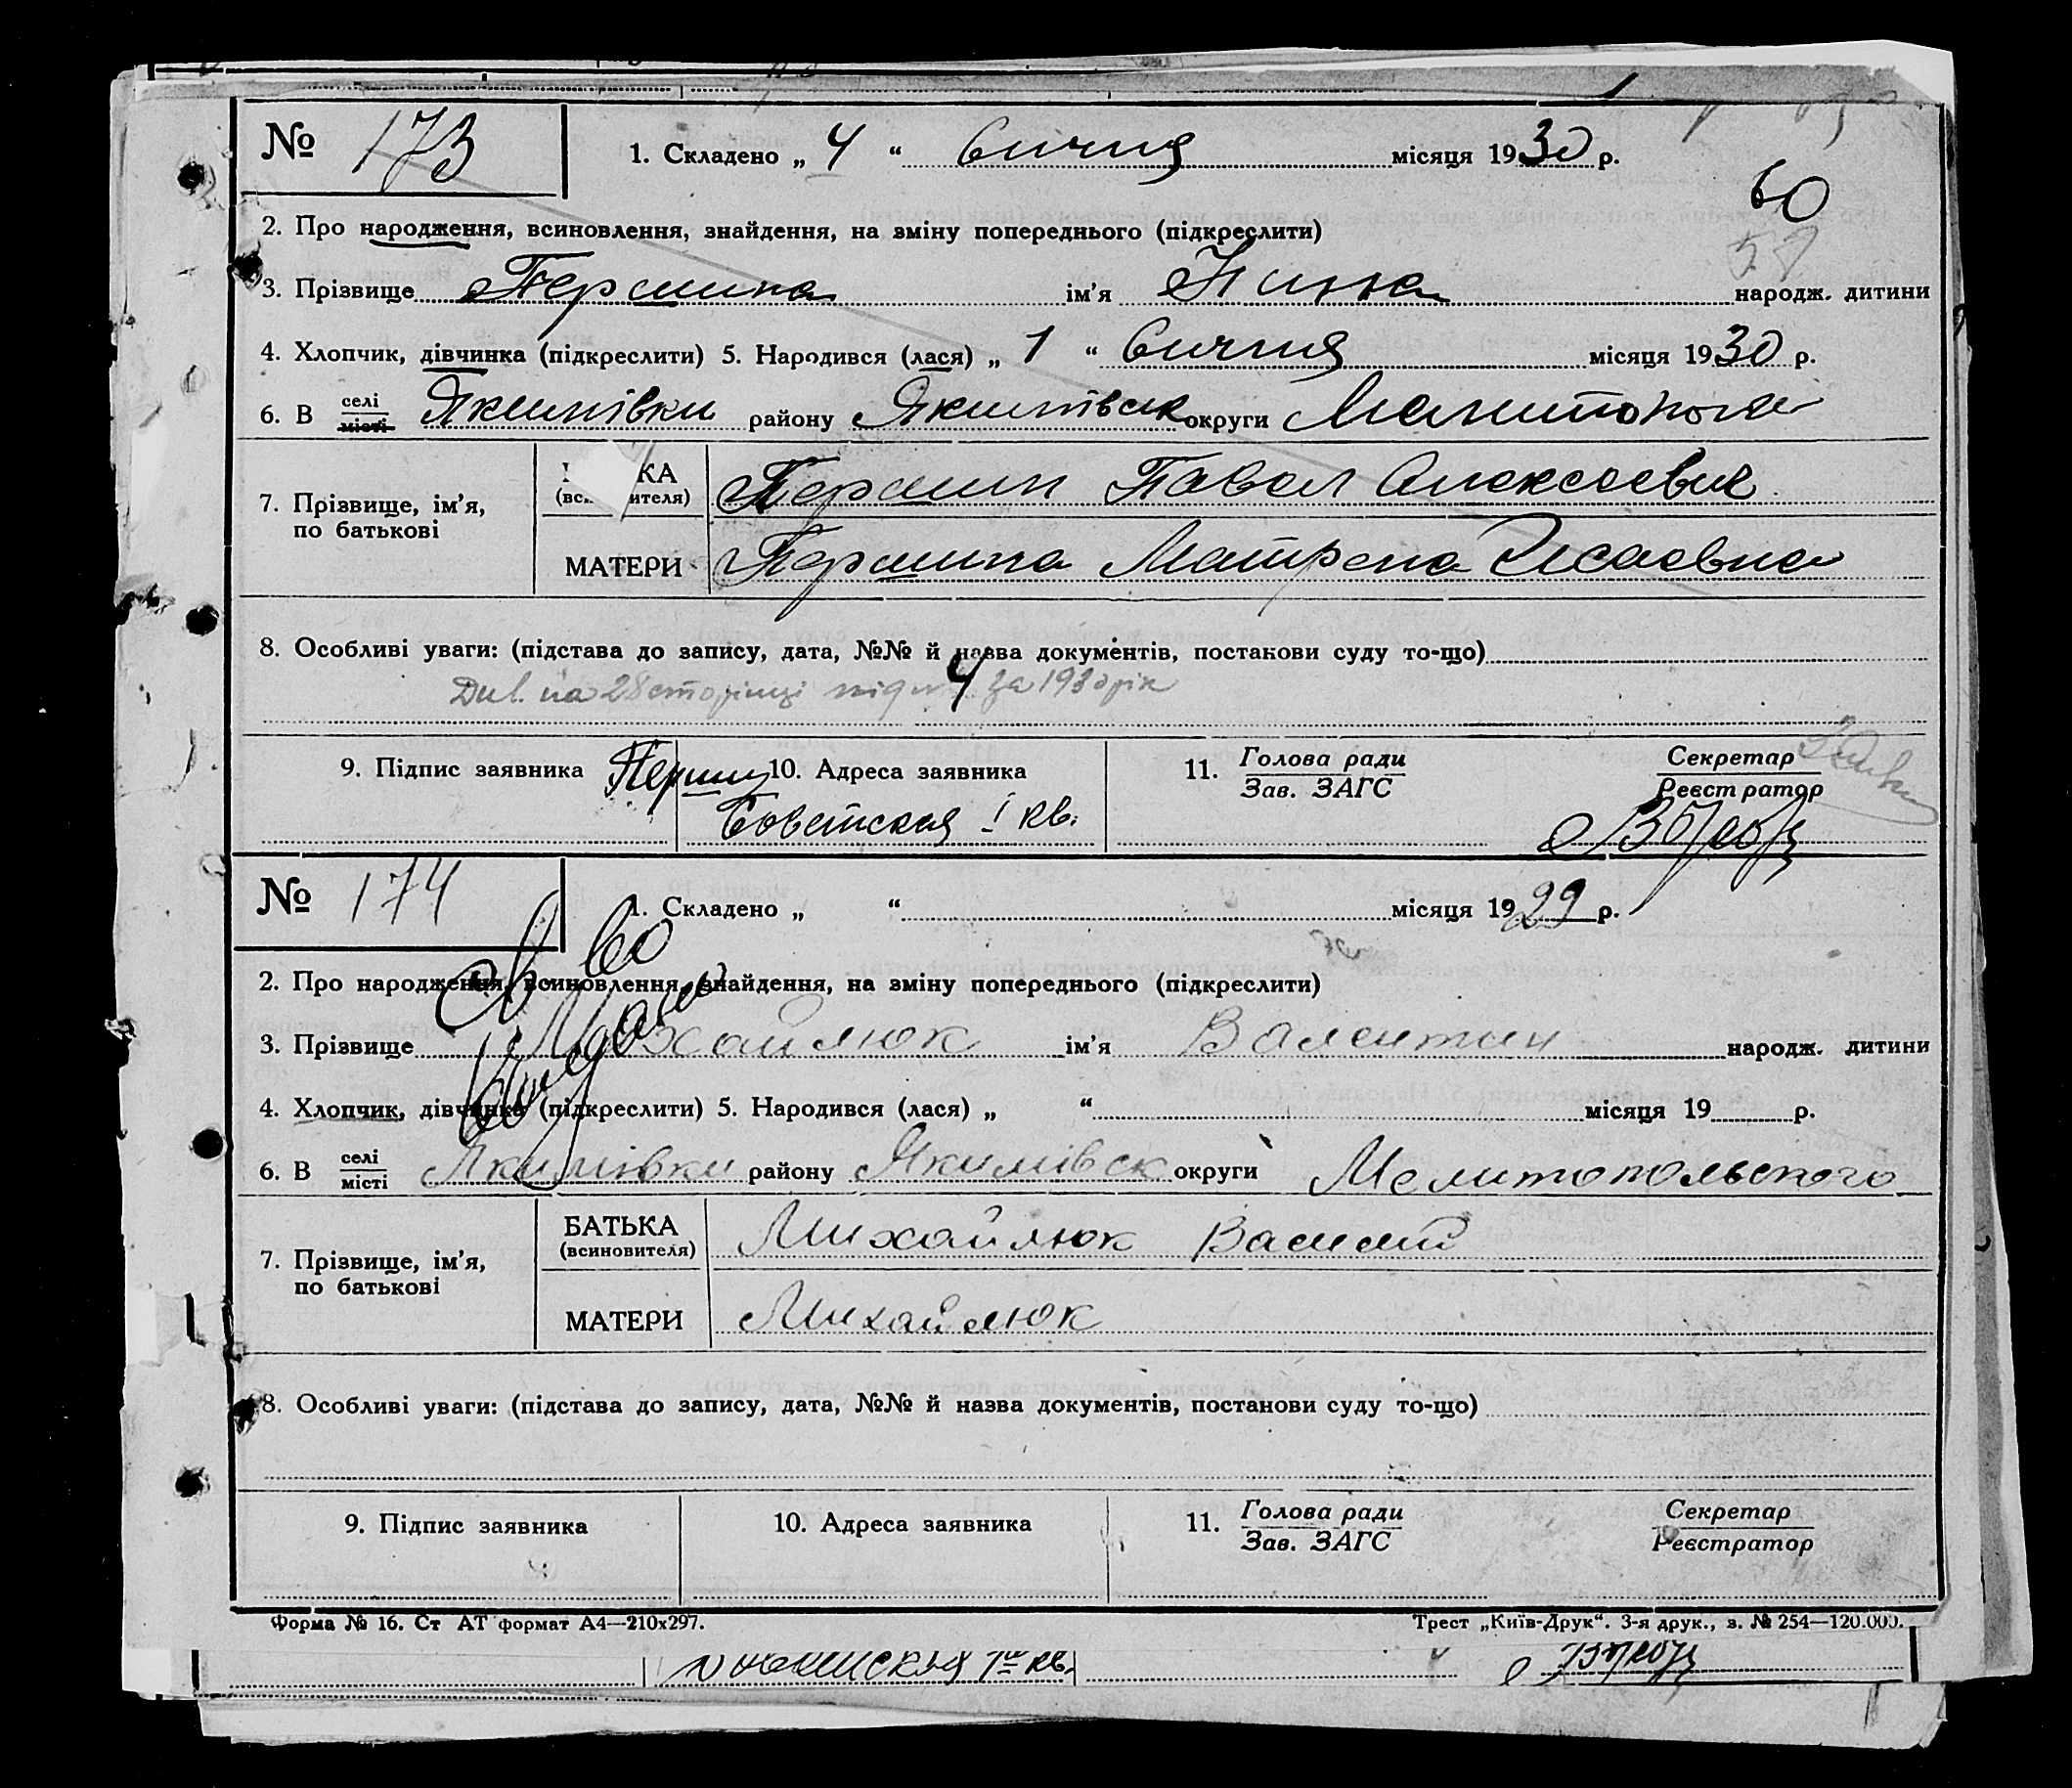 № 173 1. Складено „ 4 “ Сичня місяця 1930 р.
60
2. Про народження, всиновлення, знайдення, на зміну попереднього (підкреслити)
3. Прізвище Першина ім’я Нина народж. дитини
4. Хлопчик, дівчинка (підкреслити) 5. Народився (лася) „ 1 “ Сичня місяця 1930 р.
6. В селі місті Якимівки району Якимівськ округи
7. Прізвище, ім’я, по батькові
(всиновителя) Першин Павел Алексеевич
МАТЕРИ Першина Матрена Исаевна
8. Особливі уваги: (підстава до запису, дата, №№ й назва документів, постанови суду то-що)
Див. на 28 сторінці під № 4 за 1930 рік
9. Підпис заявника Першин 10. Адреса заявника 11. Голова ради Секретар
Зав. ЗАГС Реєстратор
Советская I кв.
№ 174 1. Складено „ “ місяця 1929 р.
2. Про народження, всиновлення, знайдення, на зміну попереднього (підкреслити)
3. Прізвище Михайлюк ім’я Валентин народж. дитини
4. Хлопчик, дівчинка (підкреслити) 5. Народився (лася) „ “ місяця 19 р.
6. В селі місті Якимівки району Якимівск округи Мелитопольського
7. Прізвище, ім’я, по батькові
БАТЬКА (всиновителя) Михайлюк Василий
МАТЕРИ Михайлюк
8. Особливі уваги: (підстава до запису, дата, №№ й назва документів, постанови суду то-що)
9. Підпис заявника 10. Адреса заявника 11. Голова ради Секретар
Зав. ЗАГС Реєстратор
Форма № 16. Ст АТ формат А4—210х297. Трест „Київ-Друк“. 3-я друк., з. № 254—120.000.
кв.